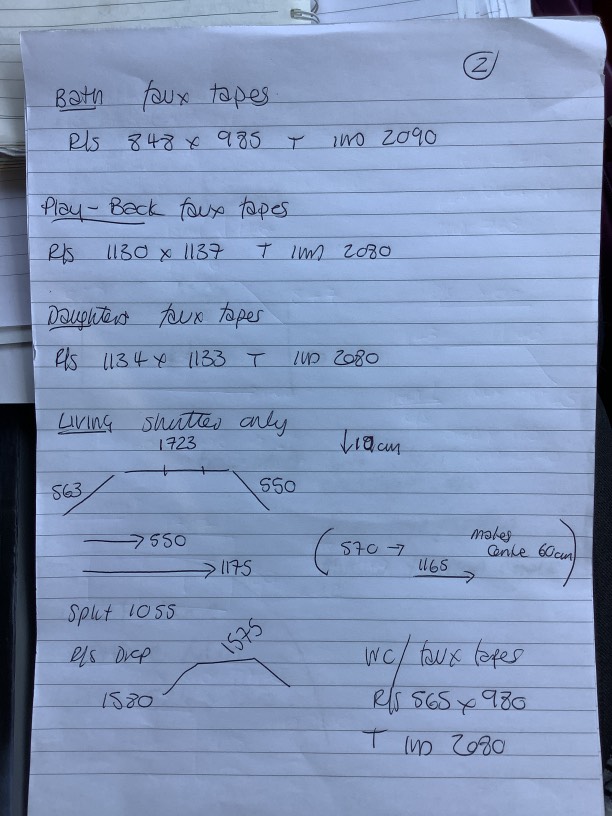 2
Bath faux tapes
R/s 848 x 985 T IMD 2090
Play-Back faux tapes
R/s 1130 x 1137 T IMD 2080
Daughters faux tapes
R/s 1134 x 1133 T IMD 2080
Living shutter only
1723
↓10cm
563
550
→ 550
→ 1175
(570 → 1165 → makes centre 60cm)
Split 1055
R/s Drop
1575
1580
WC/ faux tapes
R/s 565 x 980
T IMD 2080